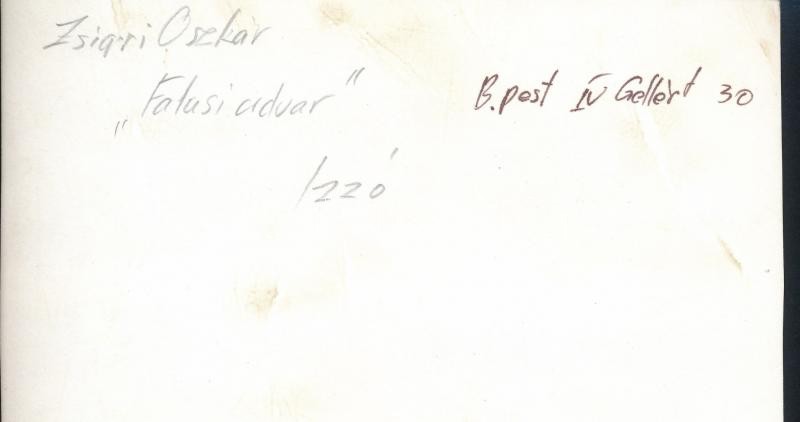 Zsigri Oszkár
„Falusi udvar"
B.pest IV Gellért 30
Izzó